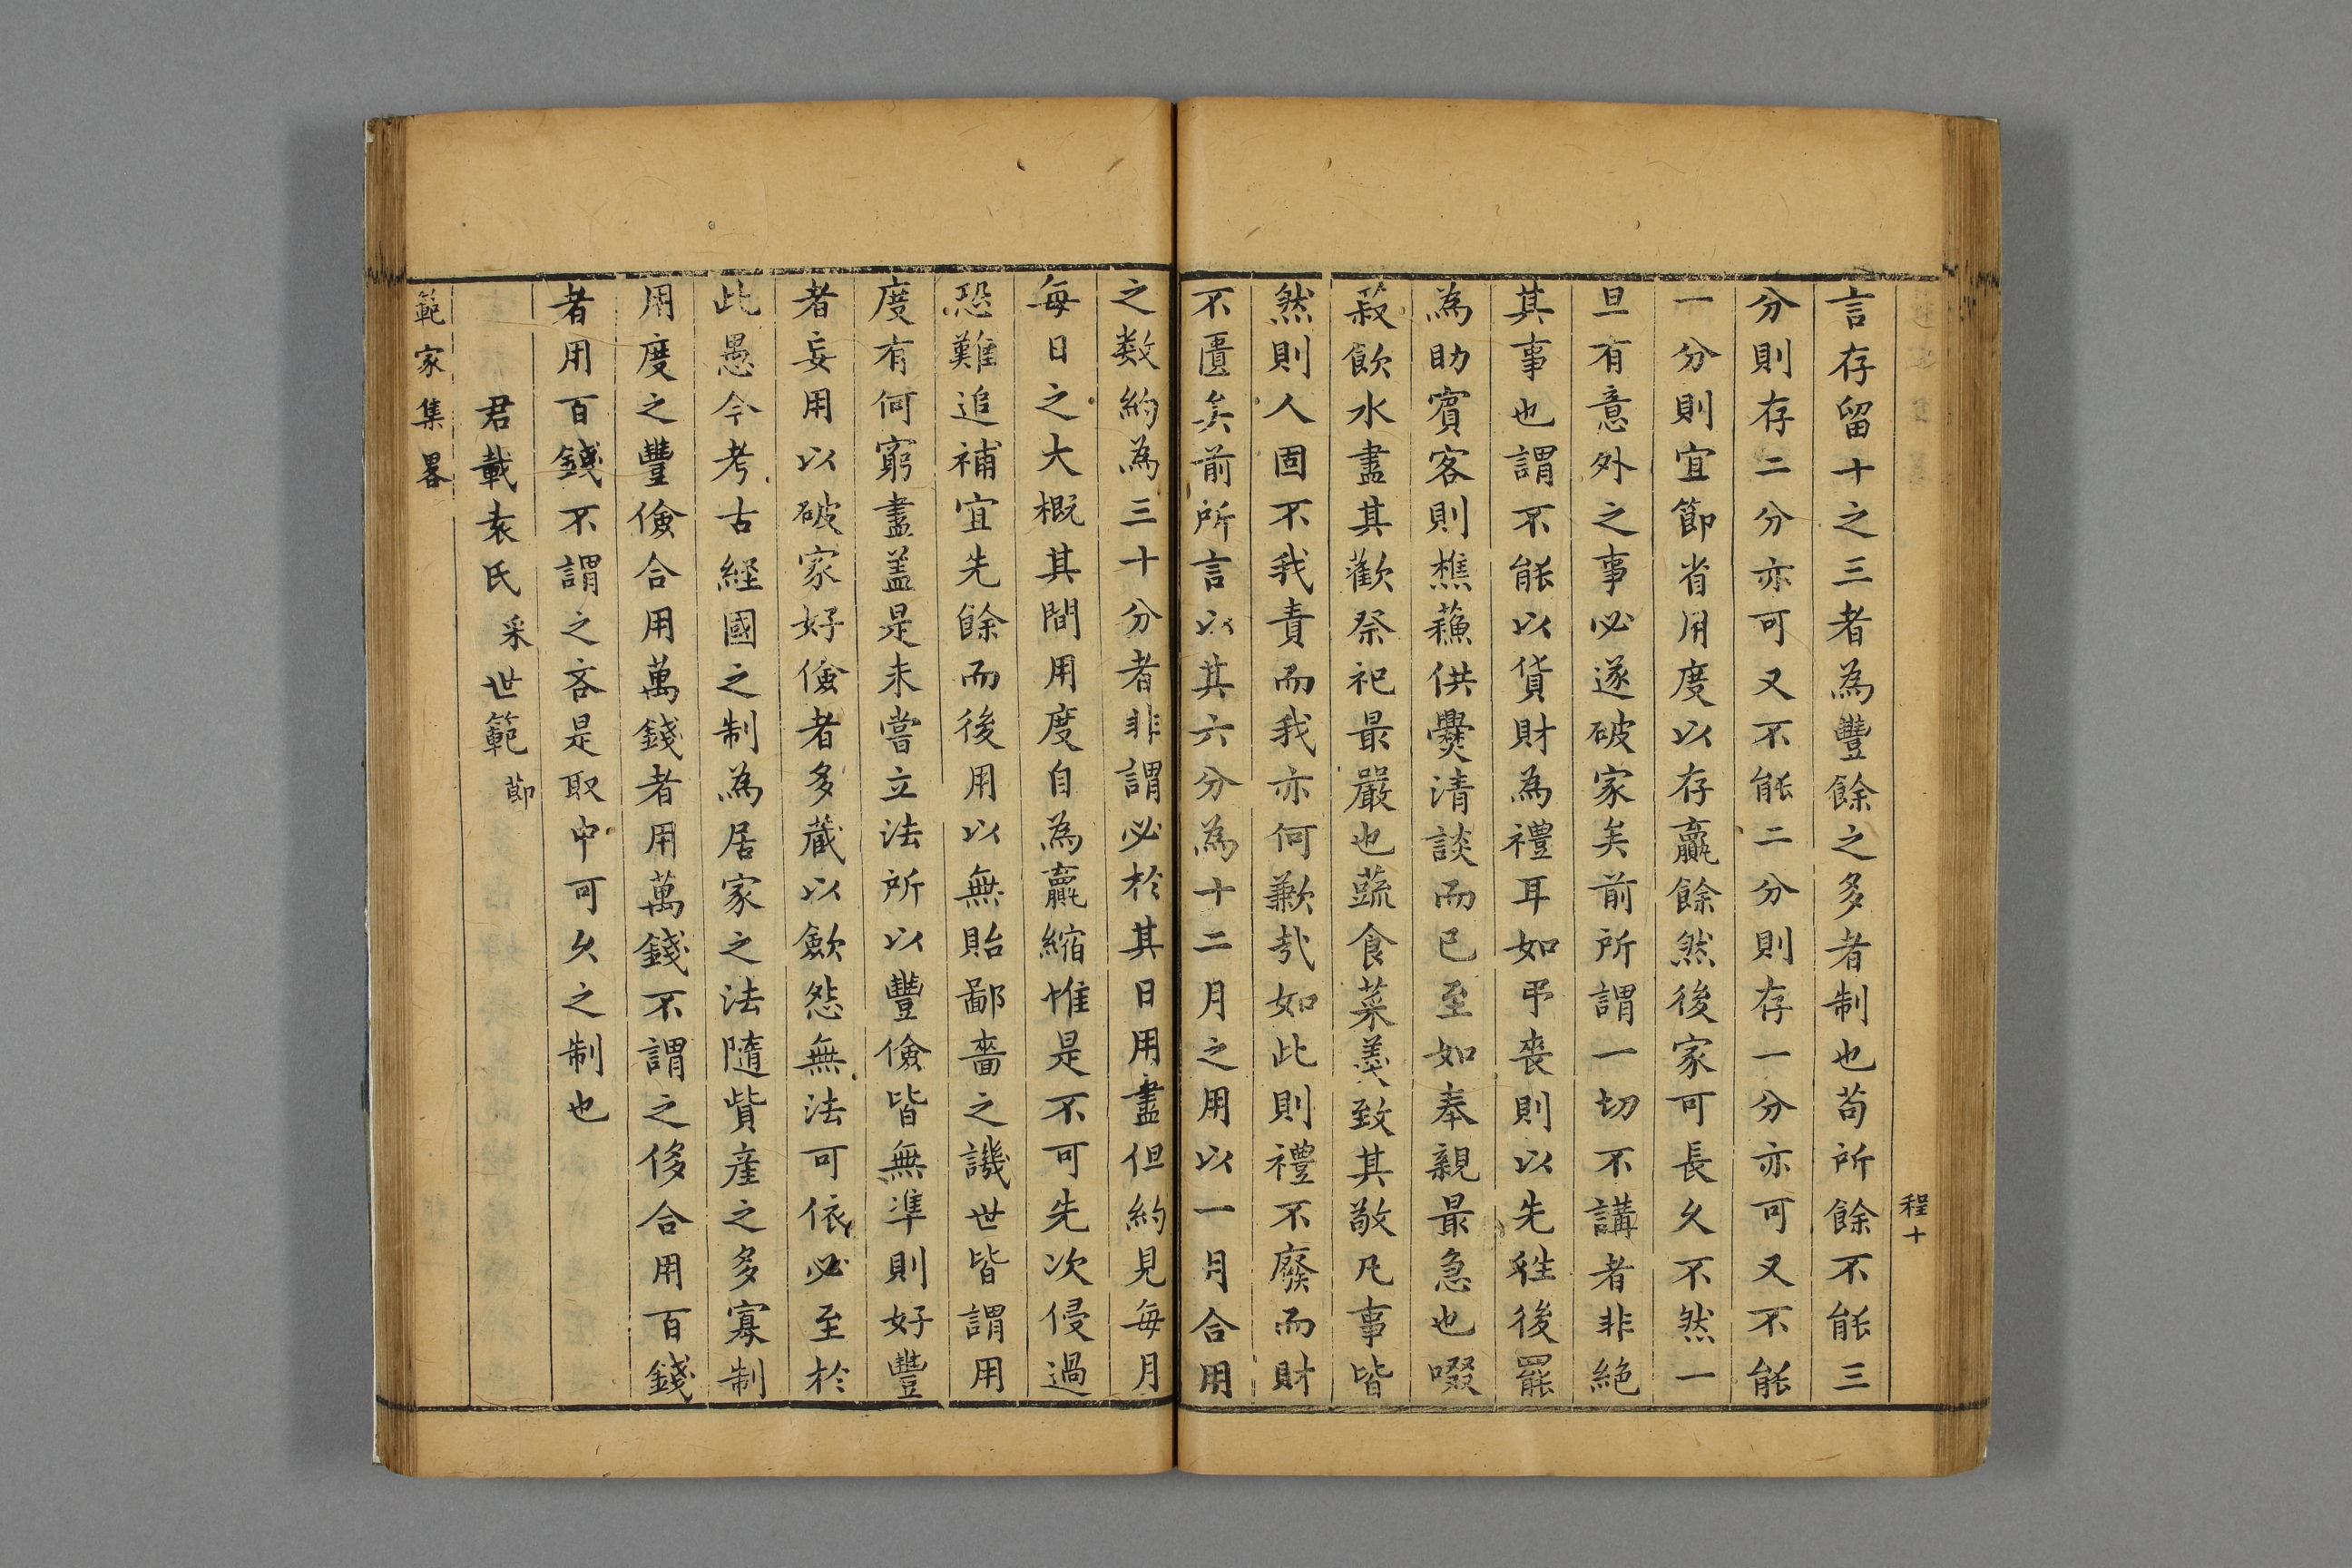 程十
言存留十之三者為豐餘之多者制也苟所餘不能三
分則存二分亦可又不能二分則存一分亦可又不能
一分則宜節省用度以存贏餘然後家可長久不然一
旦有意外之事必遂破家矣前所謂一切不講者非絶
其事也謂不能以貨財為禮耳如弔喪則以先徃後罷
為助賓客則樵蘓供爨清談而已至如奉親最急也啜
菽飲水盡其歡祭祀最嚴也蔬食菜羹致其敬凡事皆
然則人固不我責而我亦何歉㢤如此則禮不廢而財
不匱矣前所言以其六分為十二月之用以一月合用
之数約為三十分者非謂必於其日用盡但約見每月
每日之大概其間用度自為贏縮惟是不可先次侵過
恐難追補宜先餘而後用以無貽鄙嗇之譏世皆謂用
度有何窮盡盖是未嘗立法所以豐儉皆無準則好豐
者妄用以破家好儉者多蔵以歛怨無法可依必至於
此愚今考古經國之制為居家之法隨貲産之多寡制
用度之豐儉合用萬錢者用萬錢不謂之侈合用百錢
者用百錢不謂之吝是取中可久之制也
君載袁氏采世範節
範家集畧